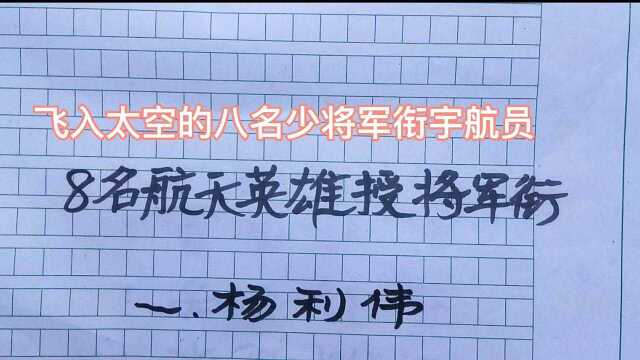 飞入太空的八名少将军衔宇航员
8名航天英雄授将军衔
一.杨利伟